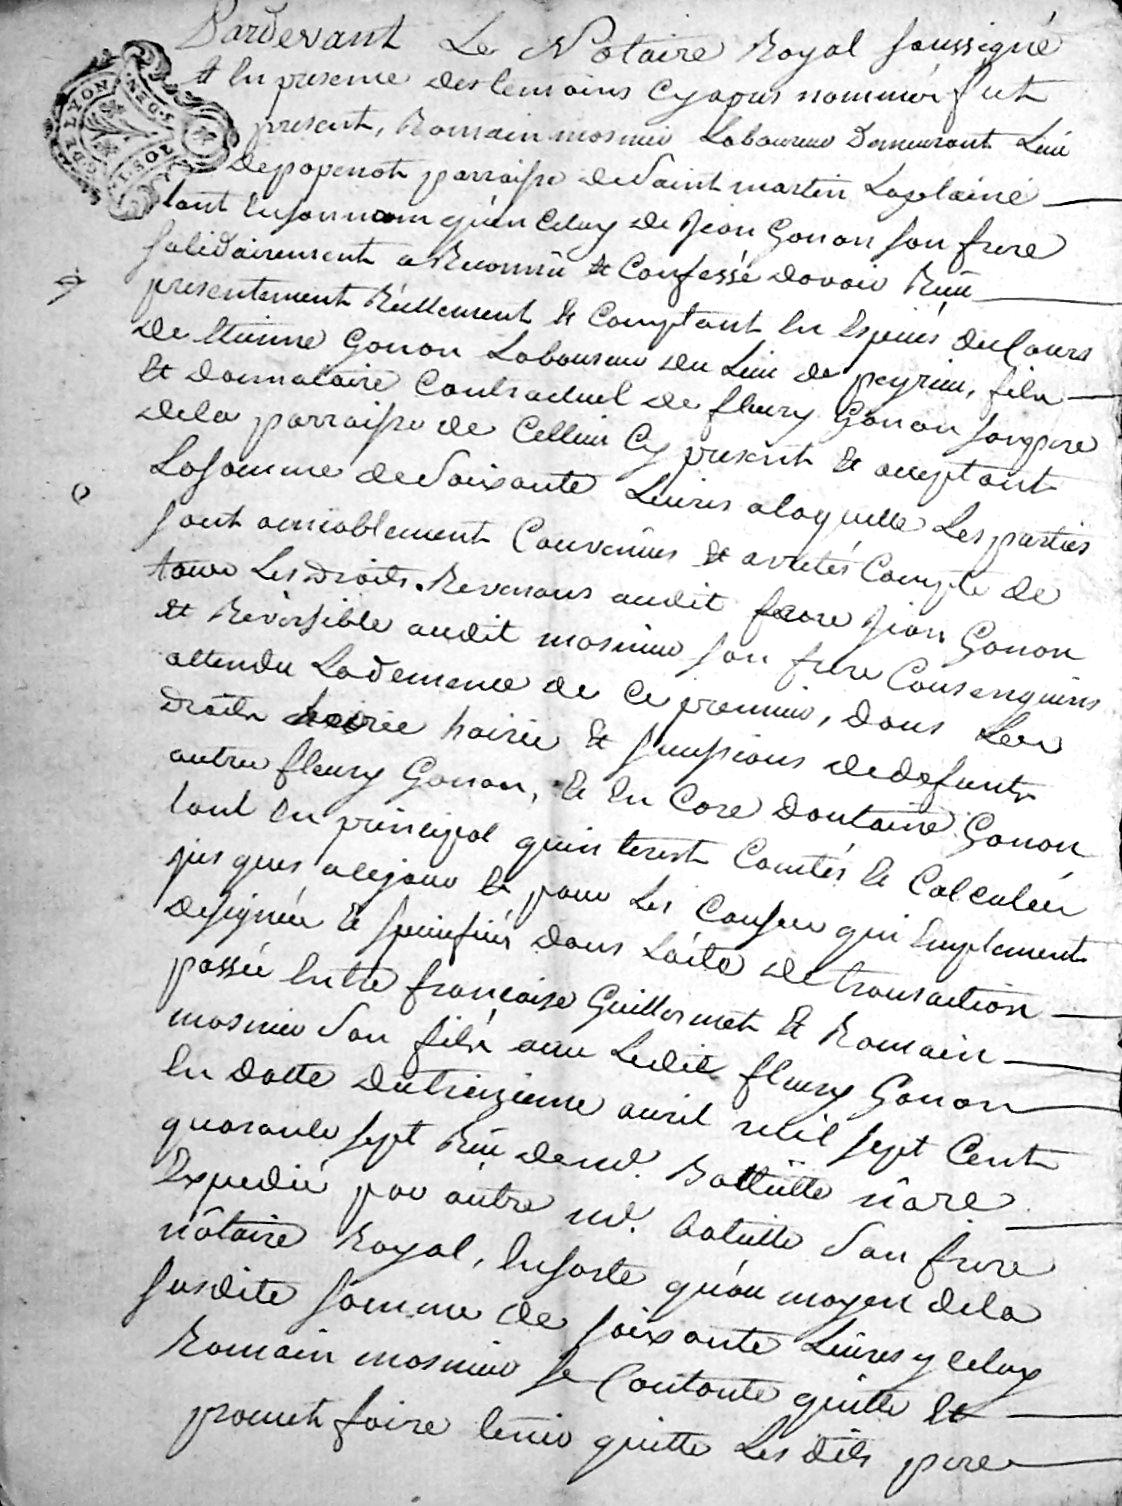 Pardevant Le Notaire Royal soussigné
Et En presence des temoins Cy apres nommés fut
present, Romain mosnier Laboureur Demeurant Lieu
de popenot parroisse de Saint martin Laplaine
tant En son nom qu'en Celuy de Jean Gonon son frere
solidairement a Reconnu et Confessé davoir Reçu
presentement Réellement Et Comptant En Especes du Cours
de Etienne Gonon Laboureur du Lieu de peyrieu, fils
Et donnataire Contractuel de fleury Gonon son pere
dela parroisse de Cellieu Cy present Et acceptant
La somme de Soixante Livres alaquelle Les parties
sont amiablement Convenues Et aretés Compte de
tous Les Droits Revenans audit Jean Gonon
et Reversible audit mosnier son frere Consenguins
attendu La demence de Ce premier, dans Les
Droits hoirie Et sucsions de defunts
autre fleury Gonon, Et En Core dantoine Gonon
tant En principal qu'interest Comtés Et Calculés
jusques a Cejour Et pour Les Causes qui Emplement
designées Et Speuifiés dans Lacte de transaction
passée Entre françoise Guillermet Et Romain
mosnier Son fils avec Ledit fleury Gonon
En datte du treizieme avril mil sept Cent
quarante sept Reçu de md. Battutte nore
Expedié par autre md. Son frere
nôtaire Royal, Ensorte qu'au moyen dela
susdite somme de soixante Livres yceluy
Romain mosnier se Contente quitte Et
promet faire tenir quitte Les dits pere
DE LYON